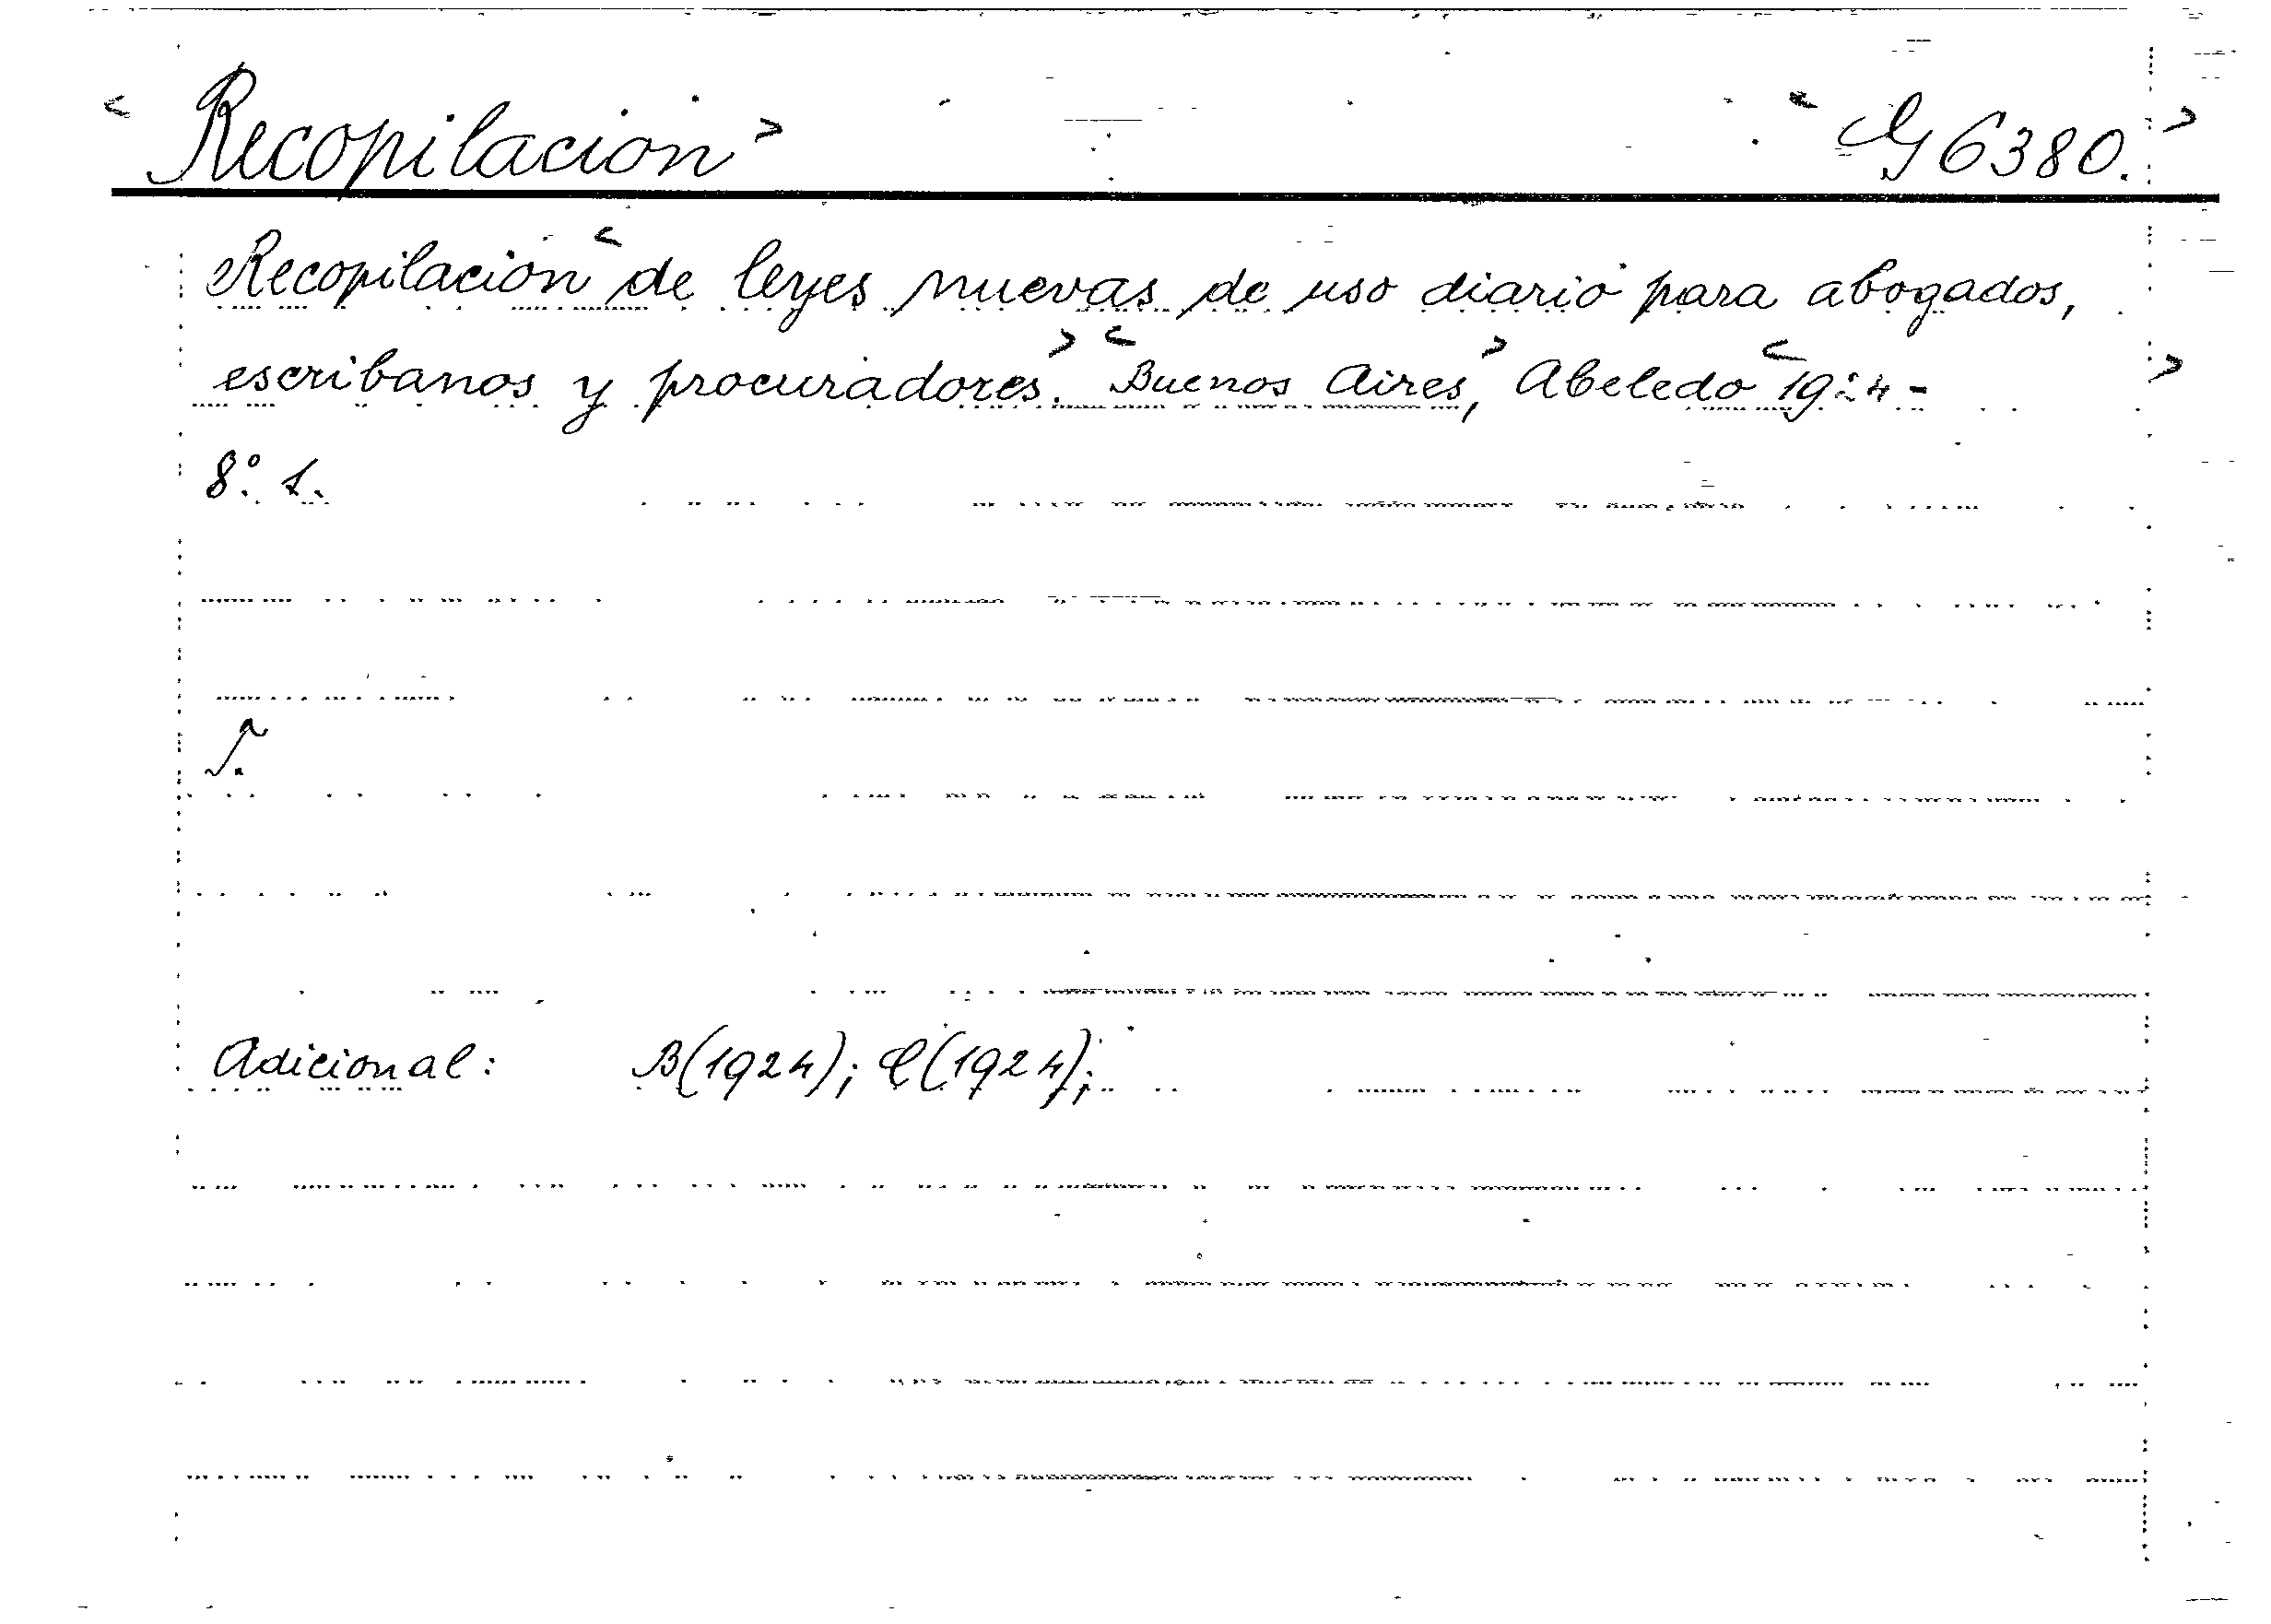 < Recopilación > < G 6380. >
Recopilación < de leyes nuevas de uso diario para abogados,
escribanos y procuradores. > < Buenos Aires, > Abeledo < 1924 - >
8º. 1.
Adicional: B(1924); C(1924);